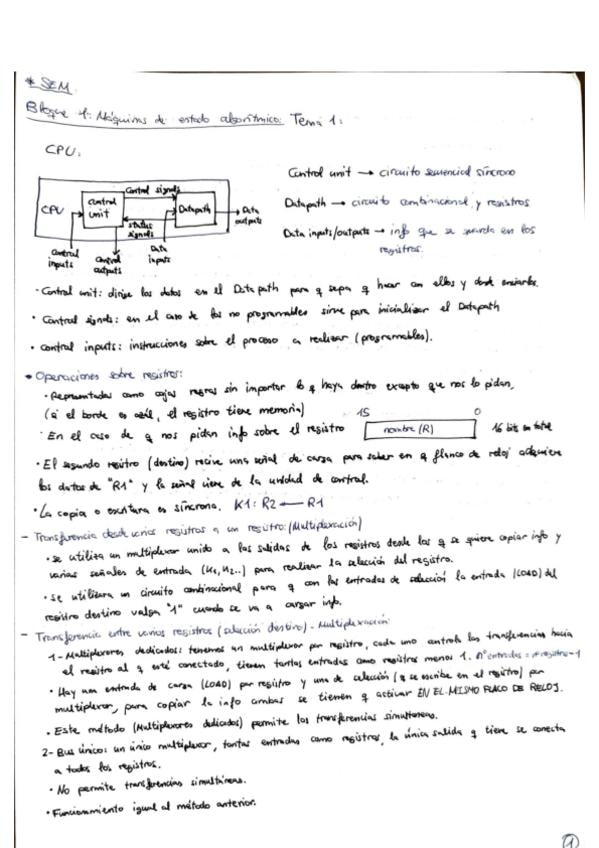 * SEM.
Bloque 1: Máquinas de estado algorítmico: Tema 1:
CPU:
CPU
control unit
control signals
status signals
Datapath
Data outputs
control inputs
control outputs
Data inputs
Control unit → circuito secuencial síncrono
Datapath → circuito combinacional y registros
Data inputs/outputs → info que se guarda en los
registros.
· Control unit: dirige los datos en el Datapath para q sepa q hacer con ellos y donde enviarlos.
· Control signals: en el caso de los no programables sirve para inicializar el Datapath
· control inputs: instrucciones sobre el proceso a realizar (programables).
• Operaciones sobre registros:
· Representadas como cajas negras sin importar lo q haya dentro excepto que nos lo pidan,
(si el borde es azul, el registro tiene memoria)
· En el caso de q nos pidan info sobre el registro
15 0
nombre (R)
16 bits en total
· El segundo registro (destino) recive una señal de carga para saber en q flanco de reloj adquiere
los datos de "R1" y la señal viene de la unidad de control.
· La copia o escritura es síncrona. K1: R2 ← R1
- Transferencia desde varios registros a un registro: (Multiplexación)
· se utiliza un multiplexor unido a las salidas de los registros desde los q se quiere copiar info y
varias señales de entrada (K1, K2..) para realizar la selección del registro.
· se utilizara un circuito combinacional para q con las entradas de selección la entrada (LOAD) del
registro destino valga "1" cuando se va a cargar info.
- Transferencia entre varios registros (selección destino) - Multiplexación:
1- Multiplexores dedicados: tenemos un multiplexor por registro, cada uno controla las transferencias hacia
el registro al q esté conectado, tienen tantas entradas como registros menos 1. nº entradas = nº registro - 1
· Hay una entrada de carga (LOAD) por registro y una de selección (q se escribe en el registro) por
multiplexor, para copiar la info ambas se tienen q activar EN EL MISMO FLACO DE RELOJ.
· Este método (Multiplexores dedicados) permite las transferencias simultaneas.
2- Bus único: un único multiplexor, tantas entradas como registros, la única salida q tiene se conecta
a todos los registros.
· No permite transferencias simultáneas.
· Funcionamiento igual al método anterior.
1